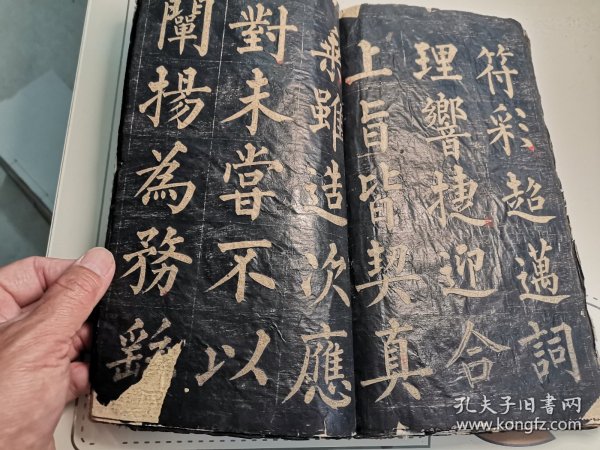 符彩超邁詞
理響捷迎合
上旨皆契真
乘雖造次應
對未嘗不以
闡揚為務
孔夫子旧书网
www.kongfz.com